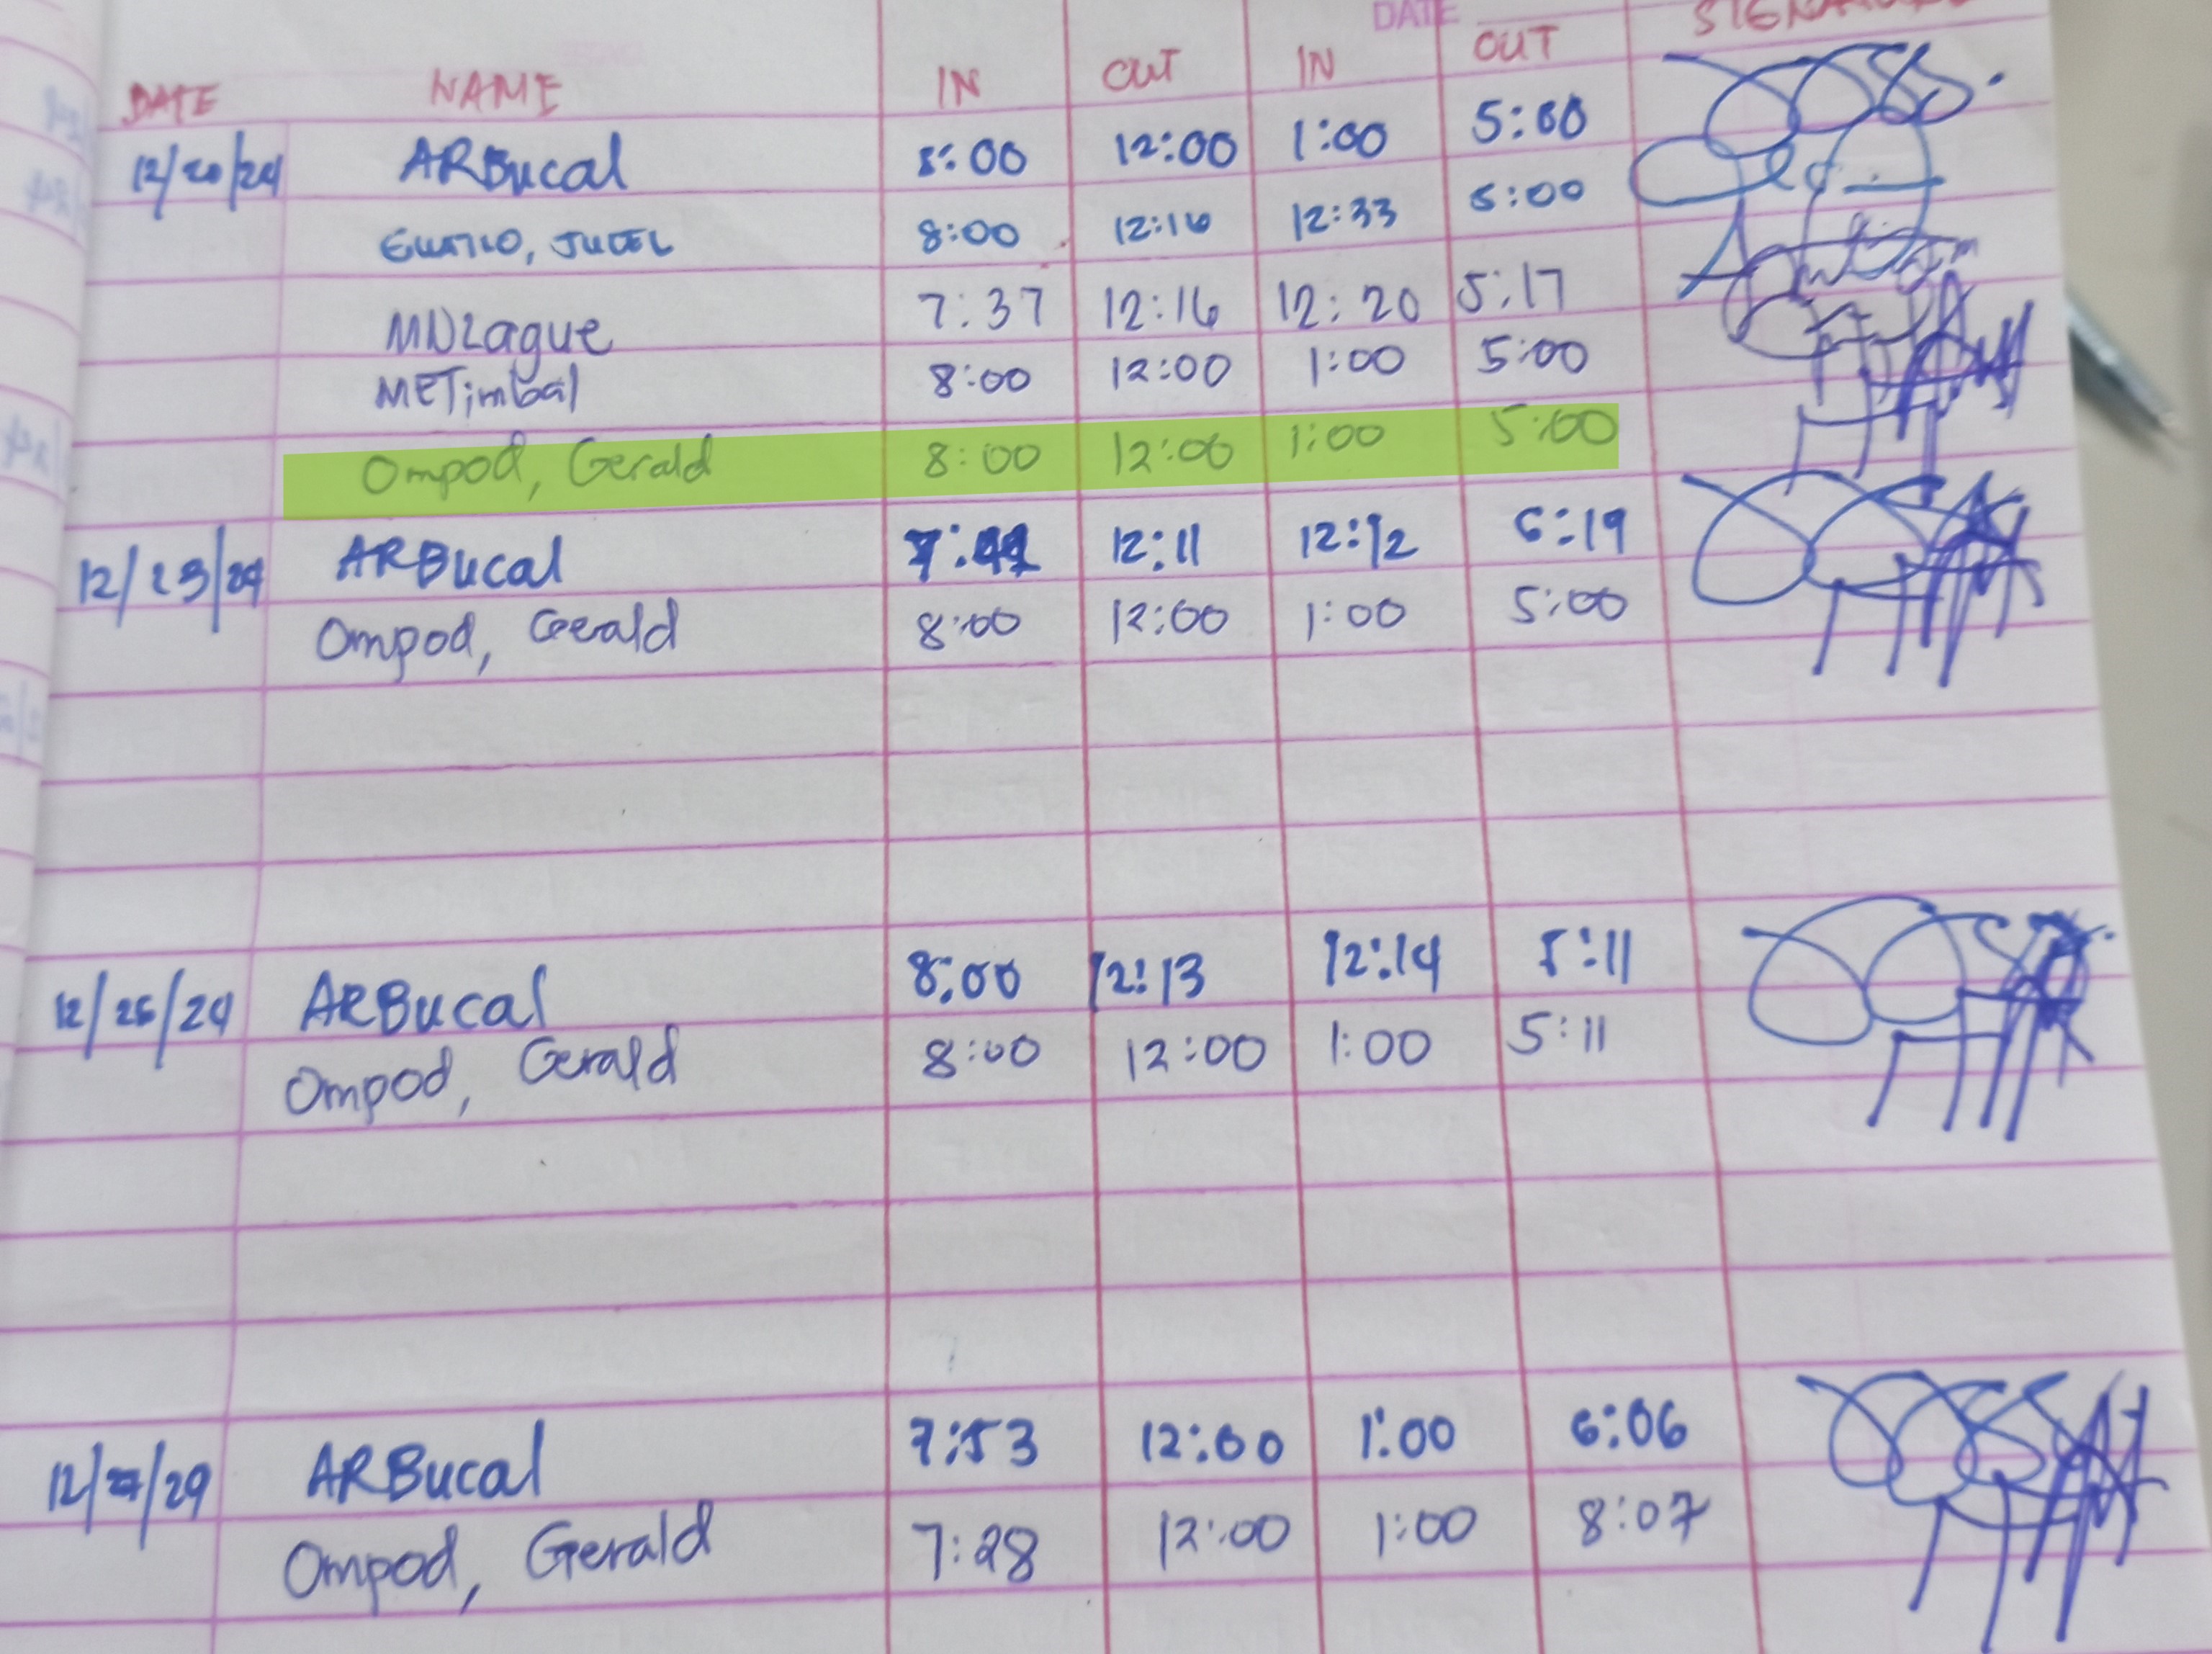 DATE
DATE NAME IN OUT IN OUT
12/20/24 ARBucal 8:00 12:00 1:00 5:00
JUDEL 8:00 12:16 12:33 5:00
MNZague 7:37 12:16 12:20 5:17
METimbal 8:00 12:00 1:00 5:00
Ompod, Gerald 8:00 12:00 1:00 5:00
12/23/24 ARBucal 12:11 12:12 6:19
Ompod, Gerald 8:00 12:00 1:00 5:00
12/26/24 ARBucal 8:00 12:13 12:14 5:11
Ompod, Gerald 8:00 12:00 1:00 5:11
12/27/24 ARBucal 7:53 12:00 1:00 6:06
Ompod, Gerald 7:28 12:00 1:00 8:07